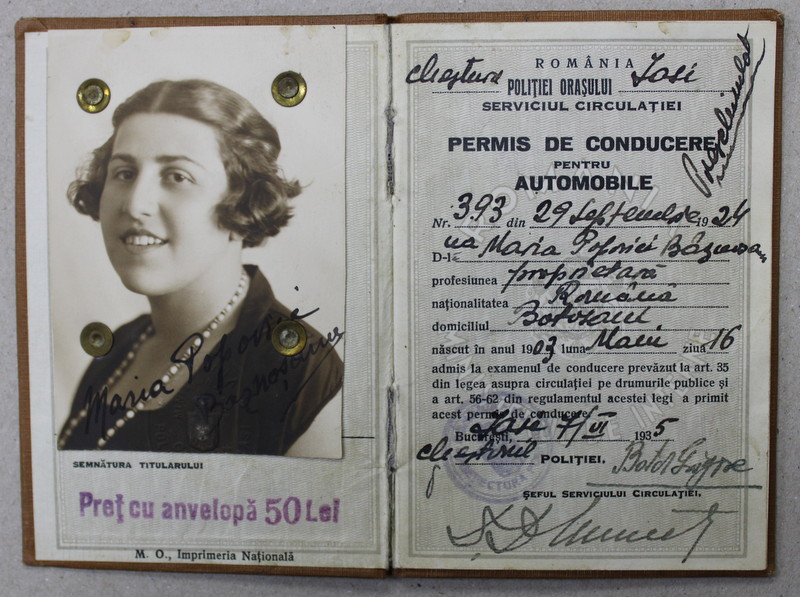 Maria Popovici
SEMNĂTURA TITULARULUI
Preț cu anvelopă 50 Lei
M. O., Imprimeria Națională
ROMÂNIA
Chestura POLIȚIEI ORAȘULUI Iasi
SERVICIUL CIRCULAȚIEI
Preschimbat
PERMIS DE CONDUCERE
PENTRU
AUTOMOBILE
Nr. 393 din 29 Septembrie 1924
D-l na Maria Popovici
profesiunea proprietară
naționalitatea Română
domiciliul Botosani
născut în anul 1903 luna Maiu ziua 16
admis la examenul de conducere prevăzut la art. 35
din legea asupra circulației pe drumurile publice și
a art. 56-62 din regulamentul acestei legi a primit
acest permis de conducere.
București, Iasi 7/VI 1935
Chestorul POLIȚIEI,
ȘEFUL SERVICIULUI CIRCULAȚIEI,